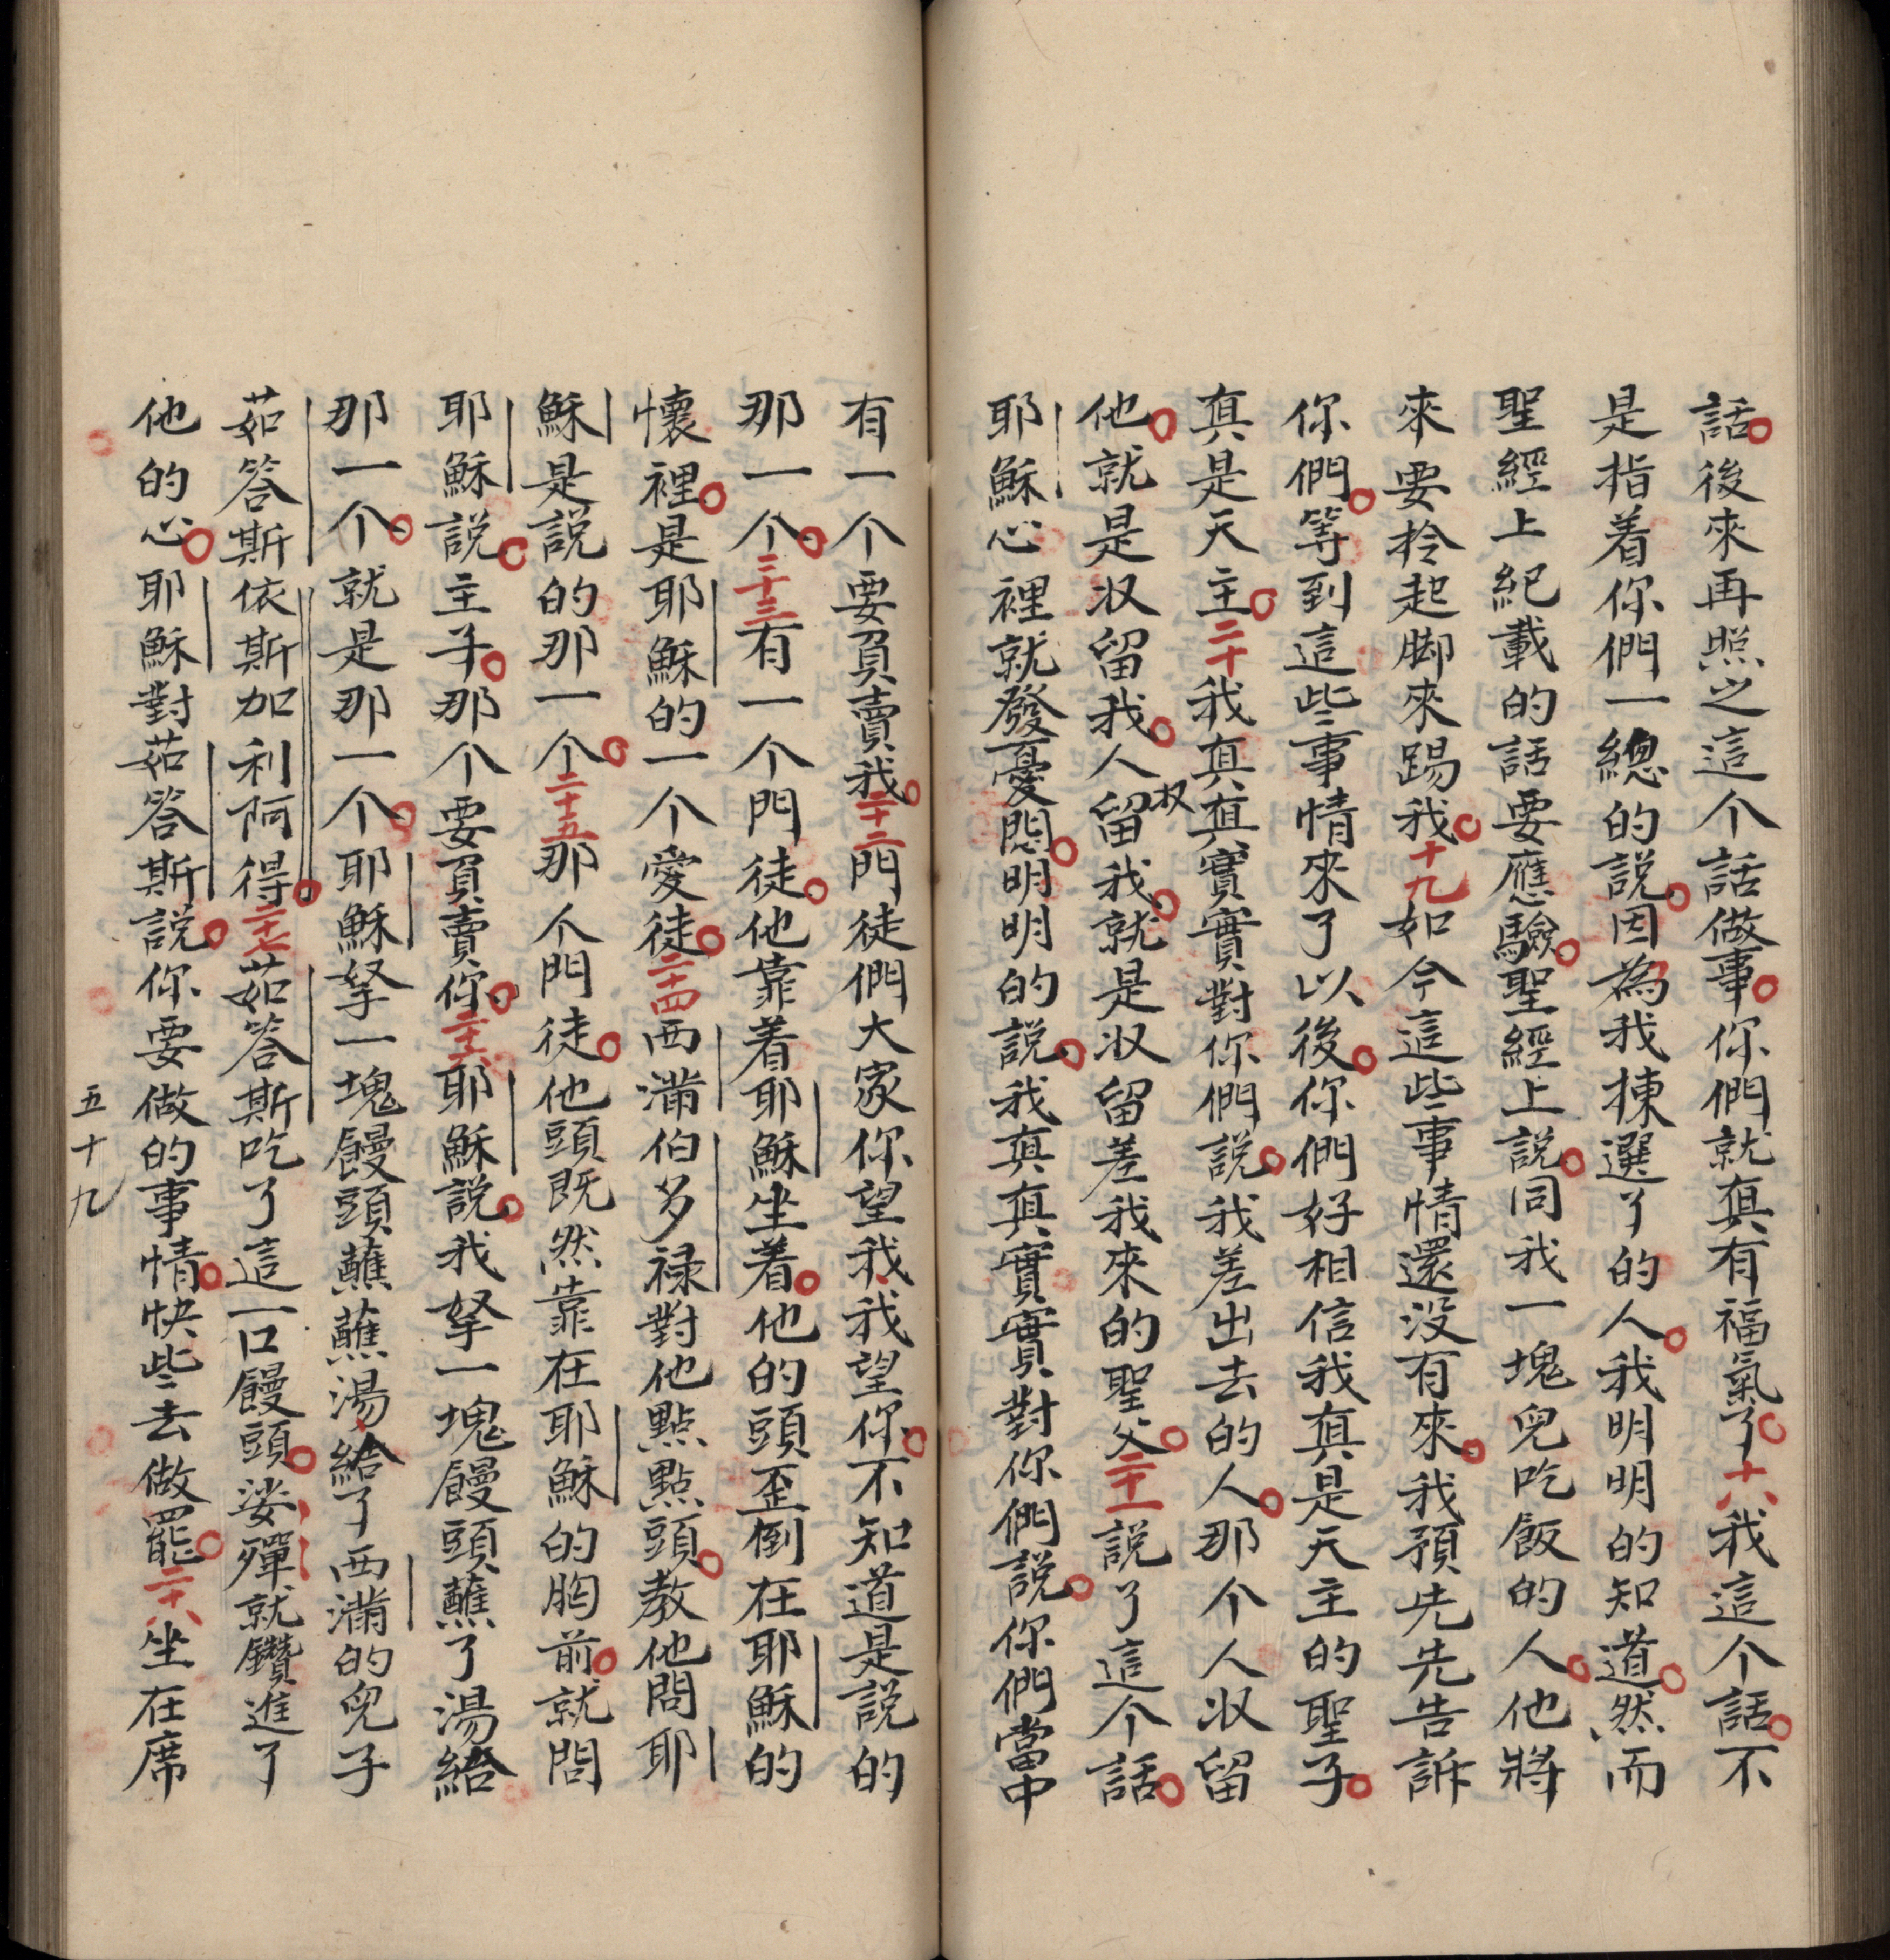 話。後來再照之這个話做事。你們就真有福氣了。十八我這个話。不
是指着你們一總的説。因為我揀選了的人。我明明的知道。然而
聖經上紀載的話要應驗。聖經上説。同我一塊兒吃飯的人。他將
來要拎起脚來踢我。十九如今這些事情還没有來。我預先先告訴
你們。等到這些事情來了以後。你們好相信我真是天主的聖子。
真是天主。二十我真真實實對你們説。我差出去的人。那个人収留
他。就是収留我。人収留我。就是収留差我來的聖父。二十一説了這个話。
耶穌心裡就發憂悶。明明的説。我真真實實對你們説。你們當中
有一个要負賣我。二十二門徒們大家你望我我望你。不知道是説的
那一个。二十三有一个門徒。他靠着耶穌坐着。他的頭歪倒在耶穌的
懷裡。是耶穌的一个愛徒。二十四西滿伯多禄對他點點頭。教他問耶
穌是説的那一个。二十五那个門徒。他頭既然靠在耶穌的胸前。就問
耶穌説。主子。那个要負賣你。二十六耶穌説。我拏一塊饅頭蘸了湯給
那一个。就是那一个。耶穌拏一塊饅頭蘸蘸湯給了西滿的兒子
茹答斯依斯加利阿得。二十七茹答斯吃了這一口饅頭。娑殫就鑽進了
他的心。耶穌對茹答斯説。你要做的事情。快些去做罷。二十八坐在席
五十九